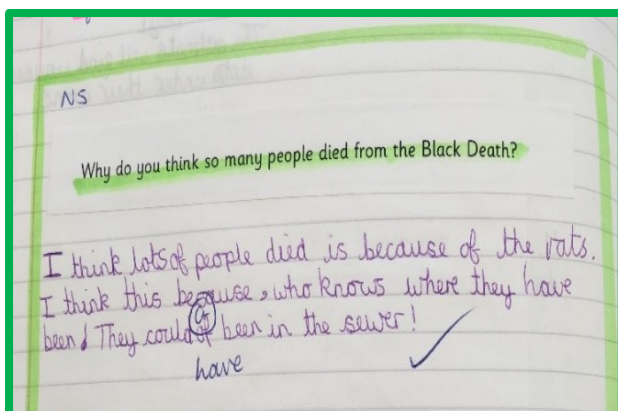 NS
Why do you think so many people died from the Black Death?
I think lots of people died is because of the rats.
I think this because, who knows where they have
been! They could of been in the sewer!
have